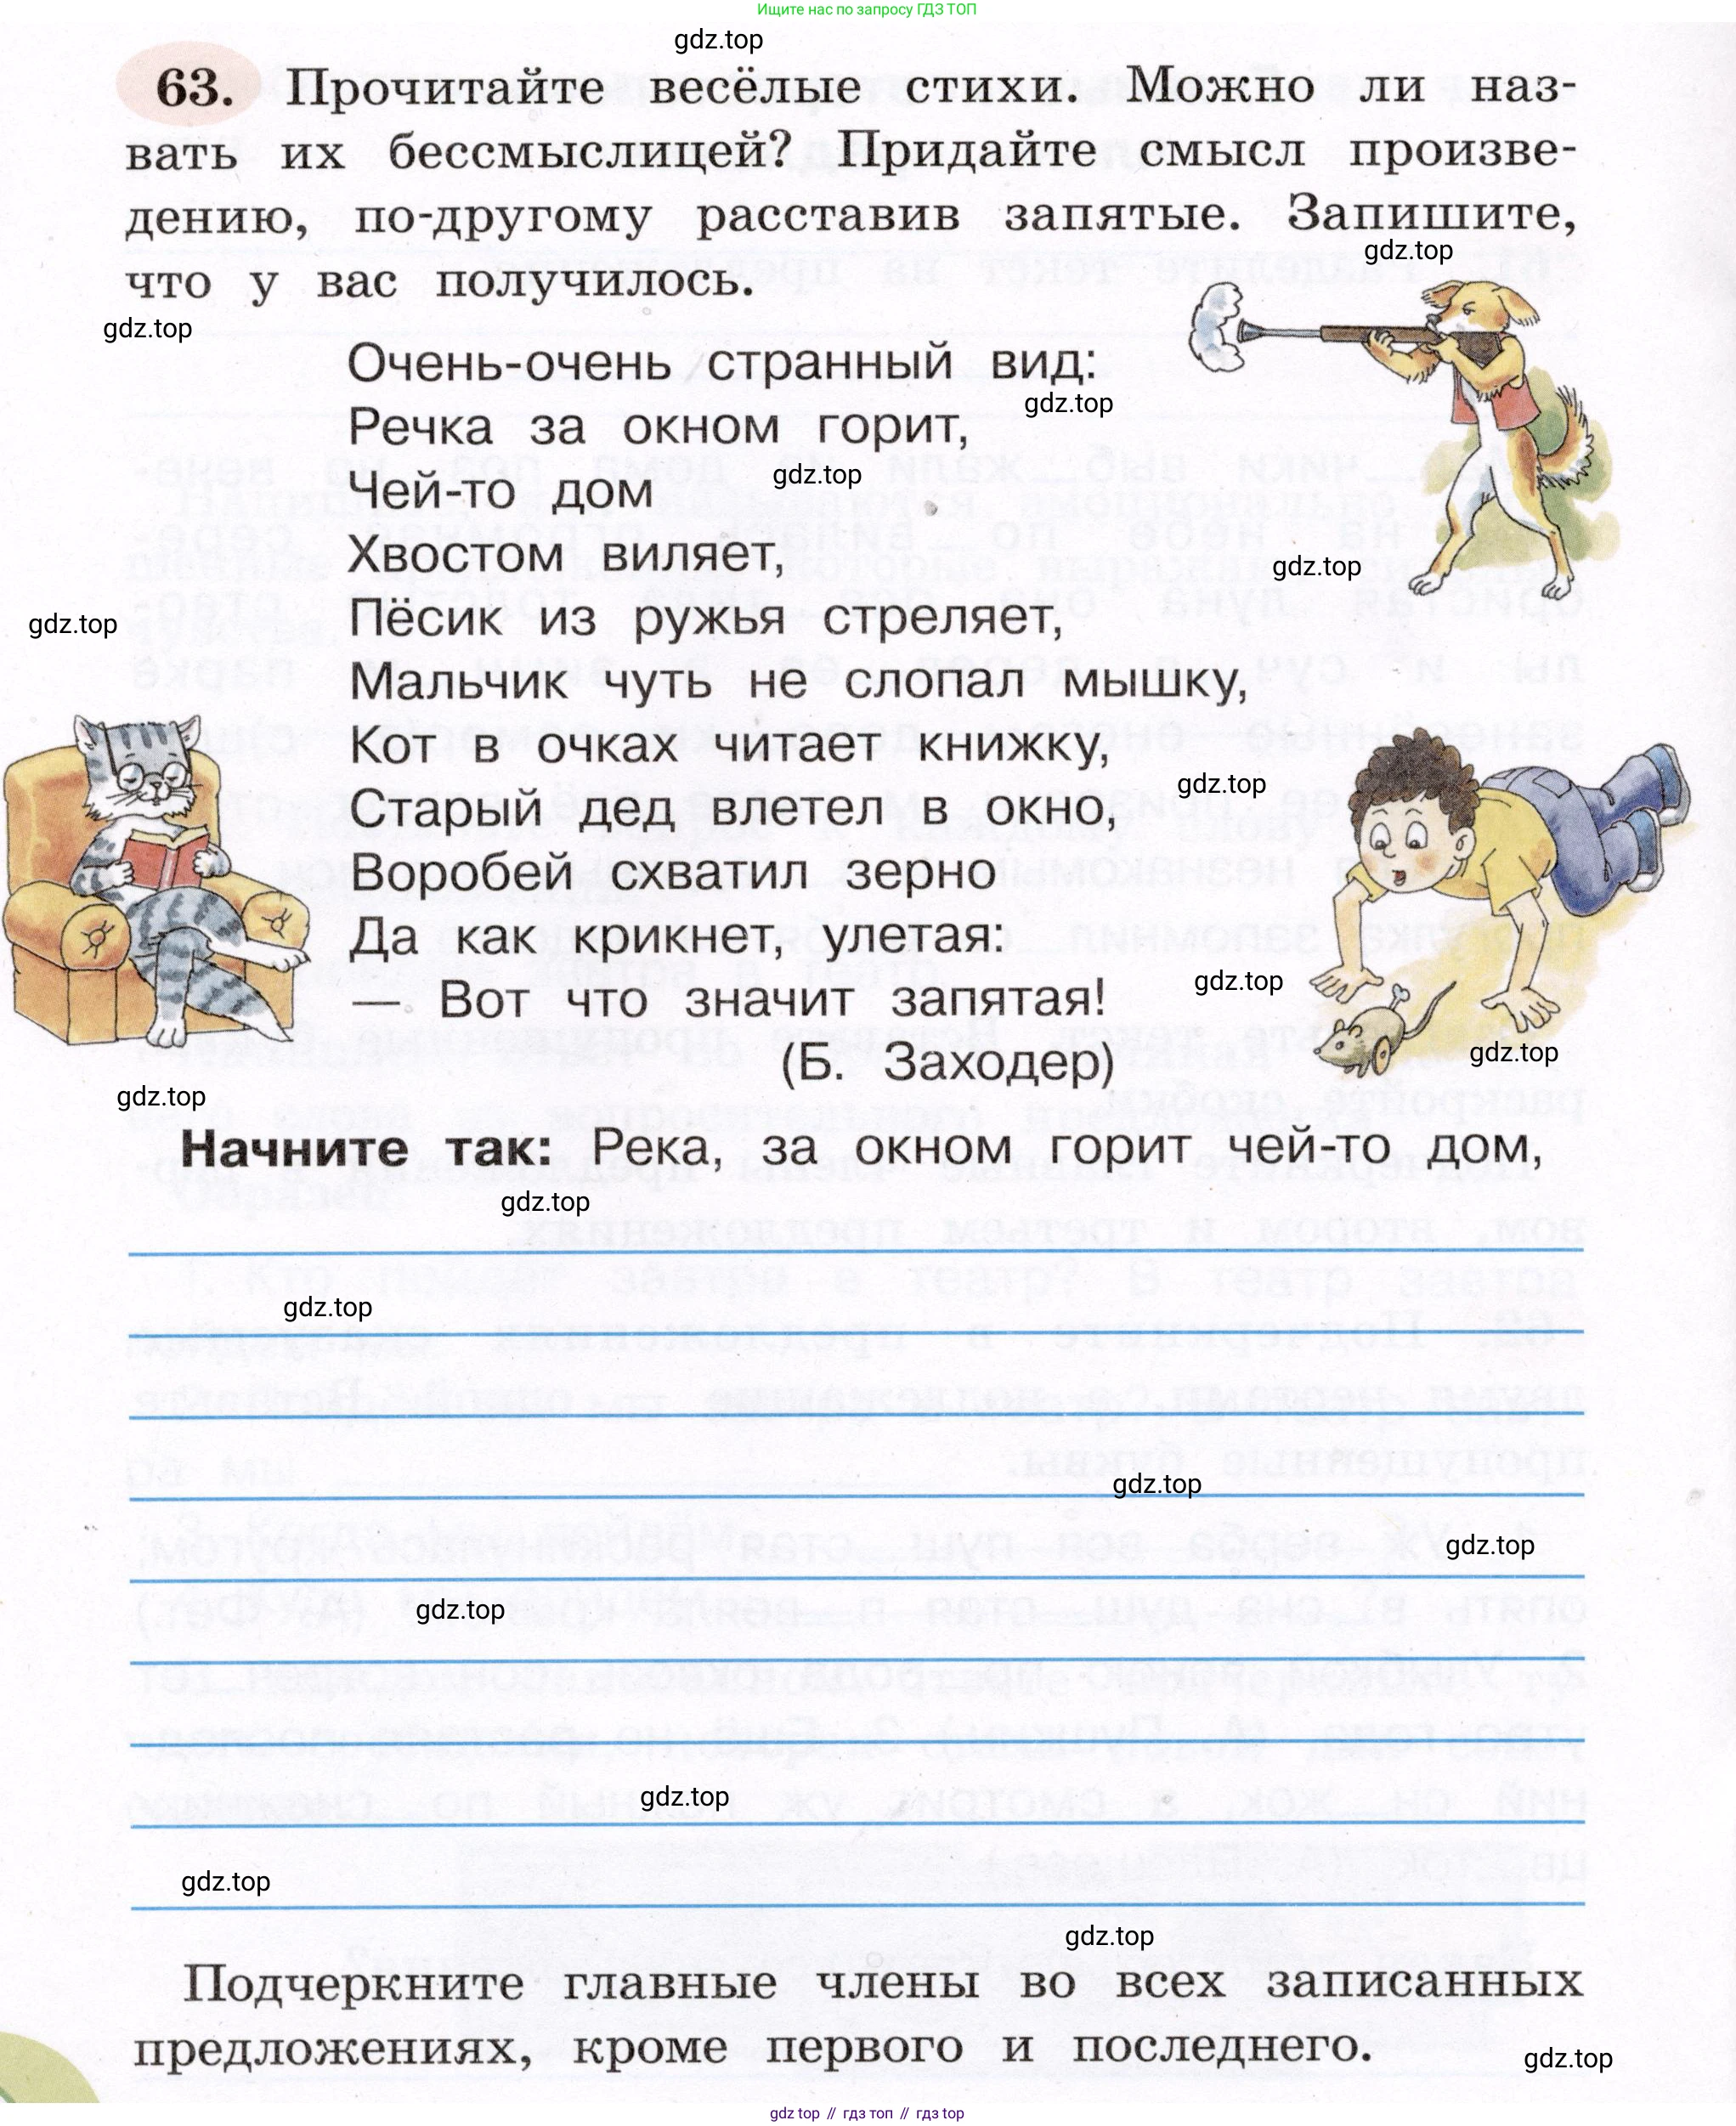 Ищите нас по запросу ГДЗ ТОП
gdz.top
63. Прочитайте весёлые стихи. Можно ли наз-
вать их бессмыслицей? Придайте смысл произве-
дению, по-другому расставив запятые. Запишите,
gdz.top
что у вас получилось.
gdz.top
Очень-очень странный вид:
gdz.top
Речка за окном горит,
gdz.top
Чей-то дом
Хвостом виляет,
gdz.top
Пёсик из ружья стреляет,
gdz.top
Мальчик чуть не слопал мышку,
Кот в очках читает книжку,
gdz.top
Старый дед влетел в окно,
Воробей схватил зерно
Да как крикнет, улетая:
gdz.top
— Вот что значит запятая!
gdz.top
(Б. Заходер)
gdz.top
Начните так: Река, за окном горит чей-то дом,
gdz.top
gdz.top
gdz.top
gdz.top
gdz.top
gdz.top
gdz.top
gdz.top
Подчеркните главные члены во всех записанных
предложениях, кроме первого и последнего.
gdz.top
gdz top // гдз топ // гдз top